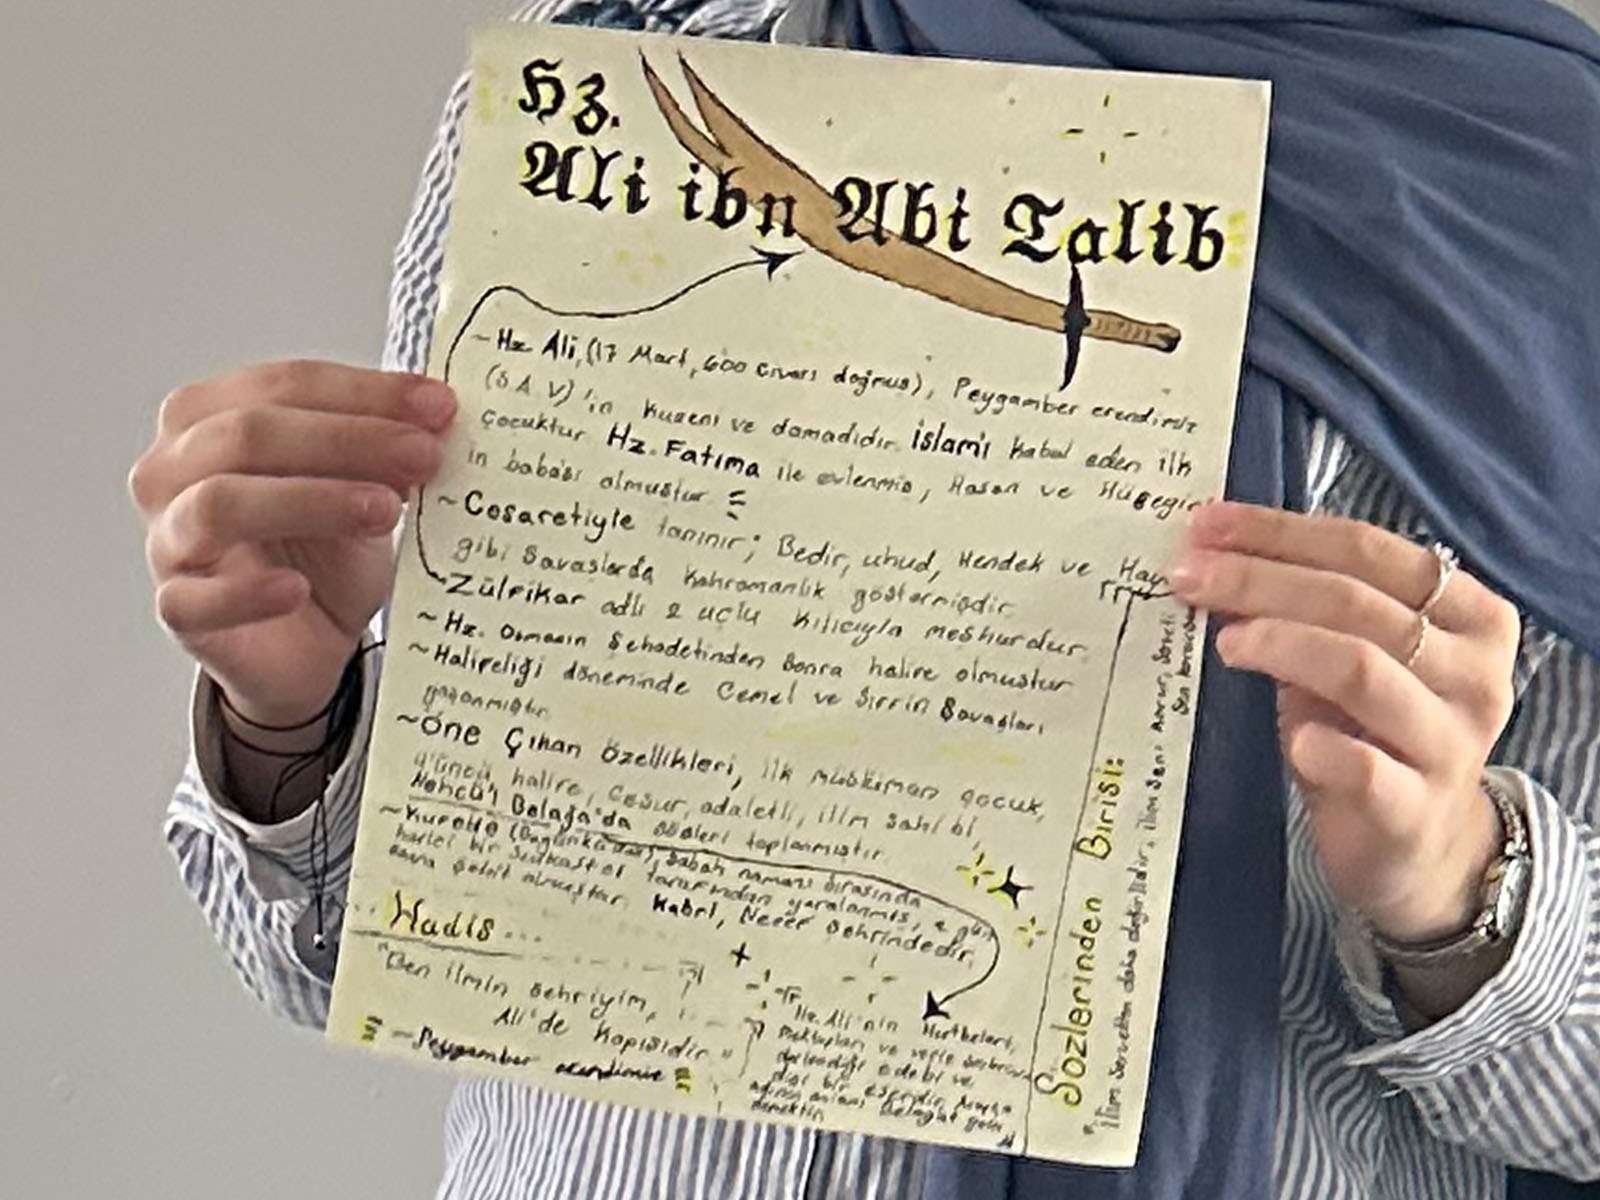 Hz.
Ali ibn Abi Talib
~Hz Ali, (17 Mart, 600 civarı doğmuş), Peygamber efendimiz
(S A V)'in kuzeni ve damadıdır. İslam'ı kabul eden ilk
çocuktur. Hz. Fatıma ile evlenmiş, Hasan ve Hüseyin'
in babası olmuştur
~Cesaretiyle tanınır; Bedir, uhud, Hendek ve
gibi Savaşlarda kahramanlık göstermişdir
Zülfikar adlı 2 uçlu kılıcıyla meshurdur.
~Hz. Osmanın Şehadetinden Sonra halife olmustur
~Halifeliği döneminde Cemel ve Sıffin Savaşları
yaşanmıştır
~Öne Çıkan Özellikleri, ilk müslüman çocuk,
4'üncü halife, Cesur, adaletli, ilim sahibi,
Nehcü'l Belağa'da sözleri toplanmıştır
~Kufede Sabah namazı Sırasında
harici bir Suikastçı tarafından yaralanmış, 2 gün
sonra şehit olmuştur. Kabri, Necef Şehrindedir.
Hadis...
"Ben ilmin Şehriyim,
Ali'de Kapısıdır"
~Peygamber efendimiz
Hz. Ali'nin Hutbeleri,
mektupları ve
derlendiği edebi ve
bir eserdir
demektir
Sözlerinden Birisi:
"ilim Servetten daha değerlidir, ilim Seni korur, Serveti
Sen korursun